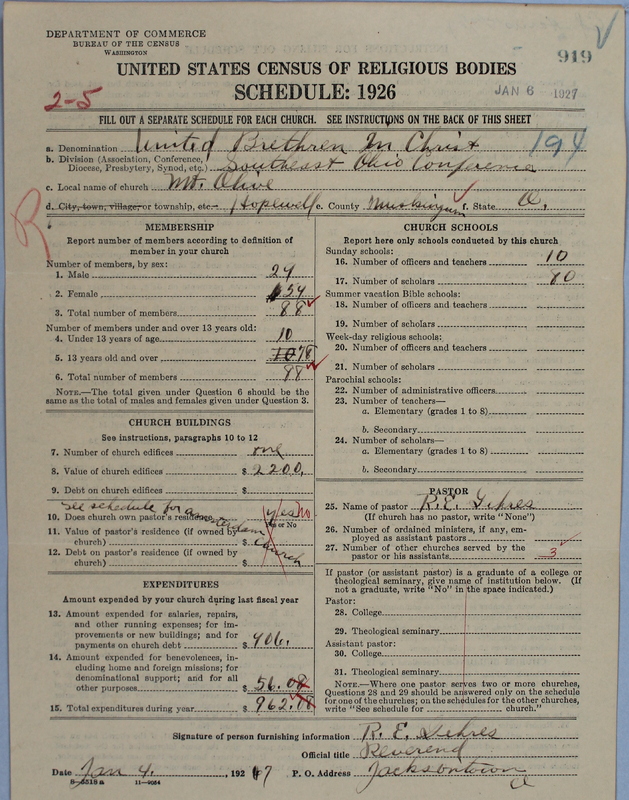 DEPARTMENT OF COMMERCE
BUREAU OF THE CENSUS
WASHINGTON
919
UNITED STATES CENSUS OF RELIGIOUS BODIES
SCHEDULE: 1926
2-5
JAN 6 1927
FILL OUT A SEPARATE SCHEDULE FOR EACH CHURCH. SEE INSTRUCTIONS ON THE BACK OF THIS SHEET
a. Denomination United Brethren In Christ 194
b. Division (Association, Conference,
Diocese, Presbytery, Synod, etc.) Southeast Ohio Conference
c. Local name of church Mt. Olive
d. City, town, village, or township, etc. Hopewell e. County Muskingum f. State O.
R
MEMBERSHIP
Report number of members according to definition
of member in your church
Number of members, by sex:
1. Male 29
2. Female 59
3. Total number of members 88
Number of members under and over 13 years old:
4. Under 13 years of age 10
5. 13 years old and over 78
6. Total number of members 88
NOTE.—The total given under Question 6 should be
same as the total of males and females given under Question 3.
CHURCH BUILDINGS
See instructions, paragraphs 10 to 12
7. Number of church edifices one
8. Value of church edifices $ 2200.
9. Debt on church edifices $
See schedule for Amsterdam Church
10. Does church own pastor's residence yes No
Yes or No
11. Value of pastor's residence (if owned by
church) $
12. Debt on pastor's residence (if owned by
church) $
EXPENDITURES
Amount expended by your church during last fiscal year
13. Amount expended for salaries, repairs,
and other running expenses; for im-
provements or new buildings; and for
payments on church debt $ 906.
14. Amount expended for benevolences, in-
cluding home and foreign missions; for
denominational support; and for all
other purposes $ 56.
15. Total expenditures during year $ 962.
CHURCH SCHOOLS
Report here only schools conducted by this church
Sunday schools:
16. Number of officers and teachers 10
17. Number of scholars 80
Summer vacation Bible schools:
18. Number of officers and teachers
19. Number of scholars
Week-day religious schools:
20. Number of officers and teachers
21. Number of scholars
Parochial schools:
22. Number of administrative officers
23. Number of teachers—
a. Elementary (grades 1 to 8)
b. Secondary
24. Number of scholars—
a. Elementary (grades 1 to 8)
b. Secondary
PASTOR
25. Name of pastor R. E.
(If church has no pastor, write "None")
26. Number of ordained ministers, if any, em-
ployed as assistant pastors
27. Number of other churches served by the
pastor or his assistants 3
If pastor (or assistant pastor) is a graduate of a college or
theological seminary, give name of institution below. (If
not a graduate, write "No" in the space indicated.)
Pastor:
28. College
29. Theological seminary
Assistant pastor:
30. College
31. Theological seminary
NOTE.—Where one pastor serves two or more churches,
Questions 28 and 29 should be answered only on the schedule
for one of the churches; on the schedules for the other churches,
write "See schedule for church."
Signature of person furnishing information R. E.
Official title Reverend
Date Jan 4. 1927 P. O. Address Jacksontown
O
8—5518 a 11—9684